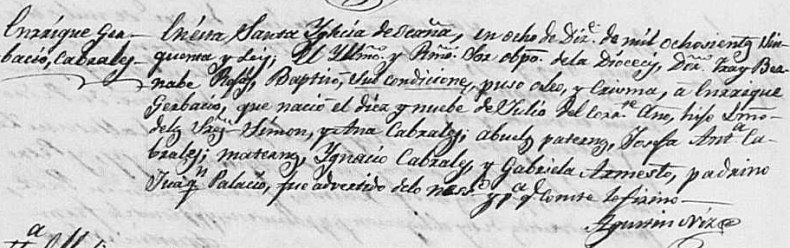 Enrrique Ger-
bacio, Cabrales
En esta Santa Yglecia de Ocaña, en ocho de Dize. de mil ochosientos sin-
quenta y seis; El Yllmo. y Rmo. Sor obpo. de la Diócecis, Don. Fray Ber-
nabe Rojas, Baptisó, sub condicione, puso oleo, y Crisma, a Enrrique
Gerbacio, que nació el diez y nuebe de Julio del corrte. Año, hijo Lmo.
de los Sres. Simon, y Ana Cabrales; abuelos paternos, Josefa Anta. Ca-
brales; maternos, Ygnacio Cabrales, y Gabriela Armesto, padrino
Juaqn. Palacio, fue advertido de lo nesso. y pa. q. Conste lo firmo—
Agustin